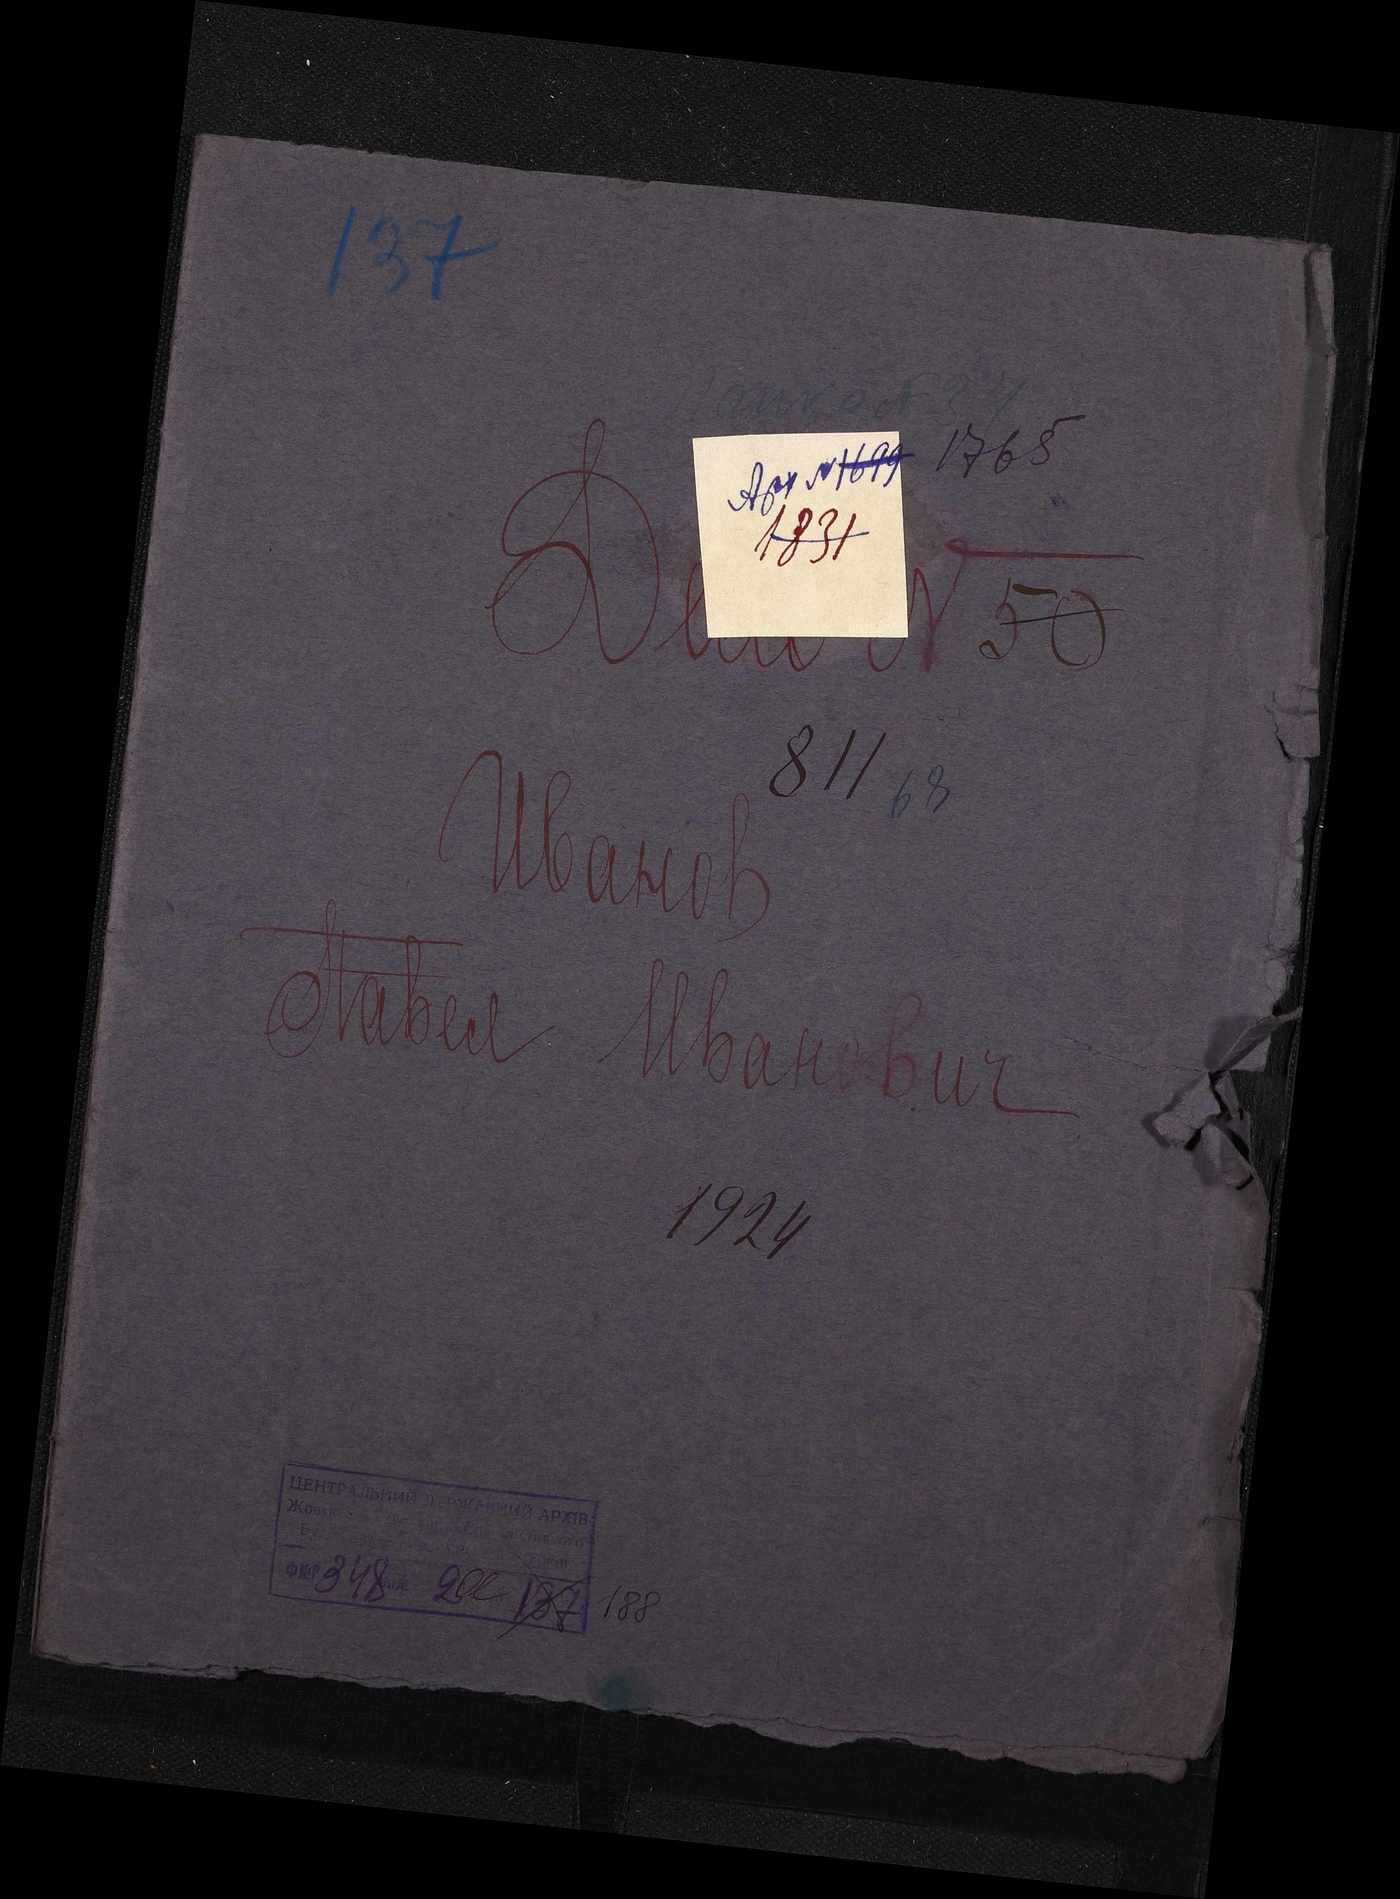 137
Папка № 34
Арх № 1699 1765
1831
Дело № 50
811 68
Иванов
Павел Иванович
1924
ЦЕНТРАЛЬНИЙ ДЕРЖАВНИЙ АРХІВ
ФНР 348 2ос 137 188